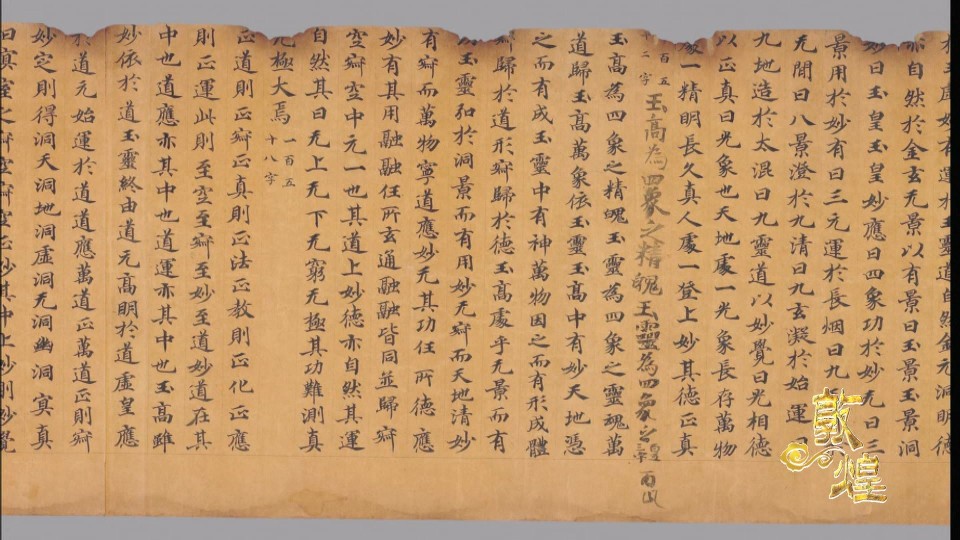 於玉虛妙有運於玉靈道自然金元洞明德
亦自然於金玄无景以有景曰玉景玉景洞
妙曰玉皇玉皇妙應曰四象功於妙无曰三
景用於妙有曰三元運於長烟曰九
无間曰八景澄於九清曰九玄凝於始運曰
九地造於太混曰九靈道以妙覺曰光相德
以正真曰光象也天地處一光象長存萬物
一精明長久真人處一登上妙其德正真
百五
十二字
玉高為四象之精魄玉靈為四象之
玉高為四象之精魄玉靈為四象之靈魂萬
道歸玉高萬象依玉靈玉高中有妙天地憑
之而有成玉靈中有神萬物因之而有形成體
歸於道形歸於德玉高處乎无景而有
玉靈弘於洞景而有用妙无而天地清妙
有而萬物寧道應妙无其功任所德應
妙有其用融融任所玄通融融皆同並歸
空空中元一也其道上妙德亦自然其運
自然其曰无上无下无窮无極其功難測真
无極大焉
一百五
十八字
正道則正正真則正法正教則正化正應
則正運此則至空至至妙至道妙道在其
中也道應亦其中也道運亦其中也玉高雖
妙依於道玉靈終由道元高明於道虛皇應
於道元始運於道道應萬道正萬道正則
妙定則得洞天洞地洞虛洞无洞幽洞寞真
曰寞至之空正妙其中上妙則妙覺
敦煌